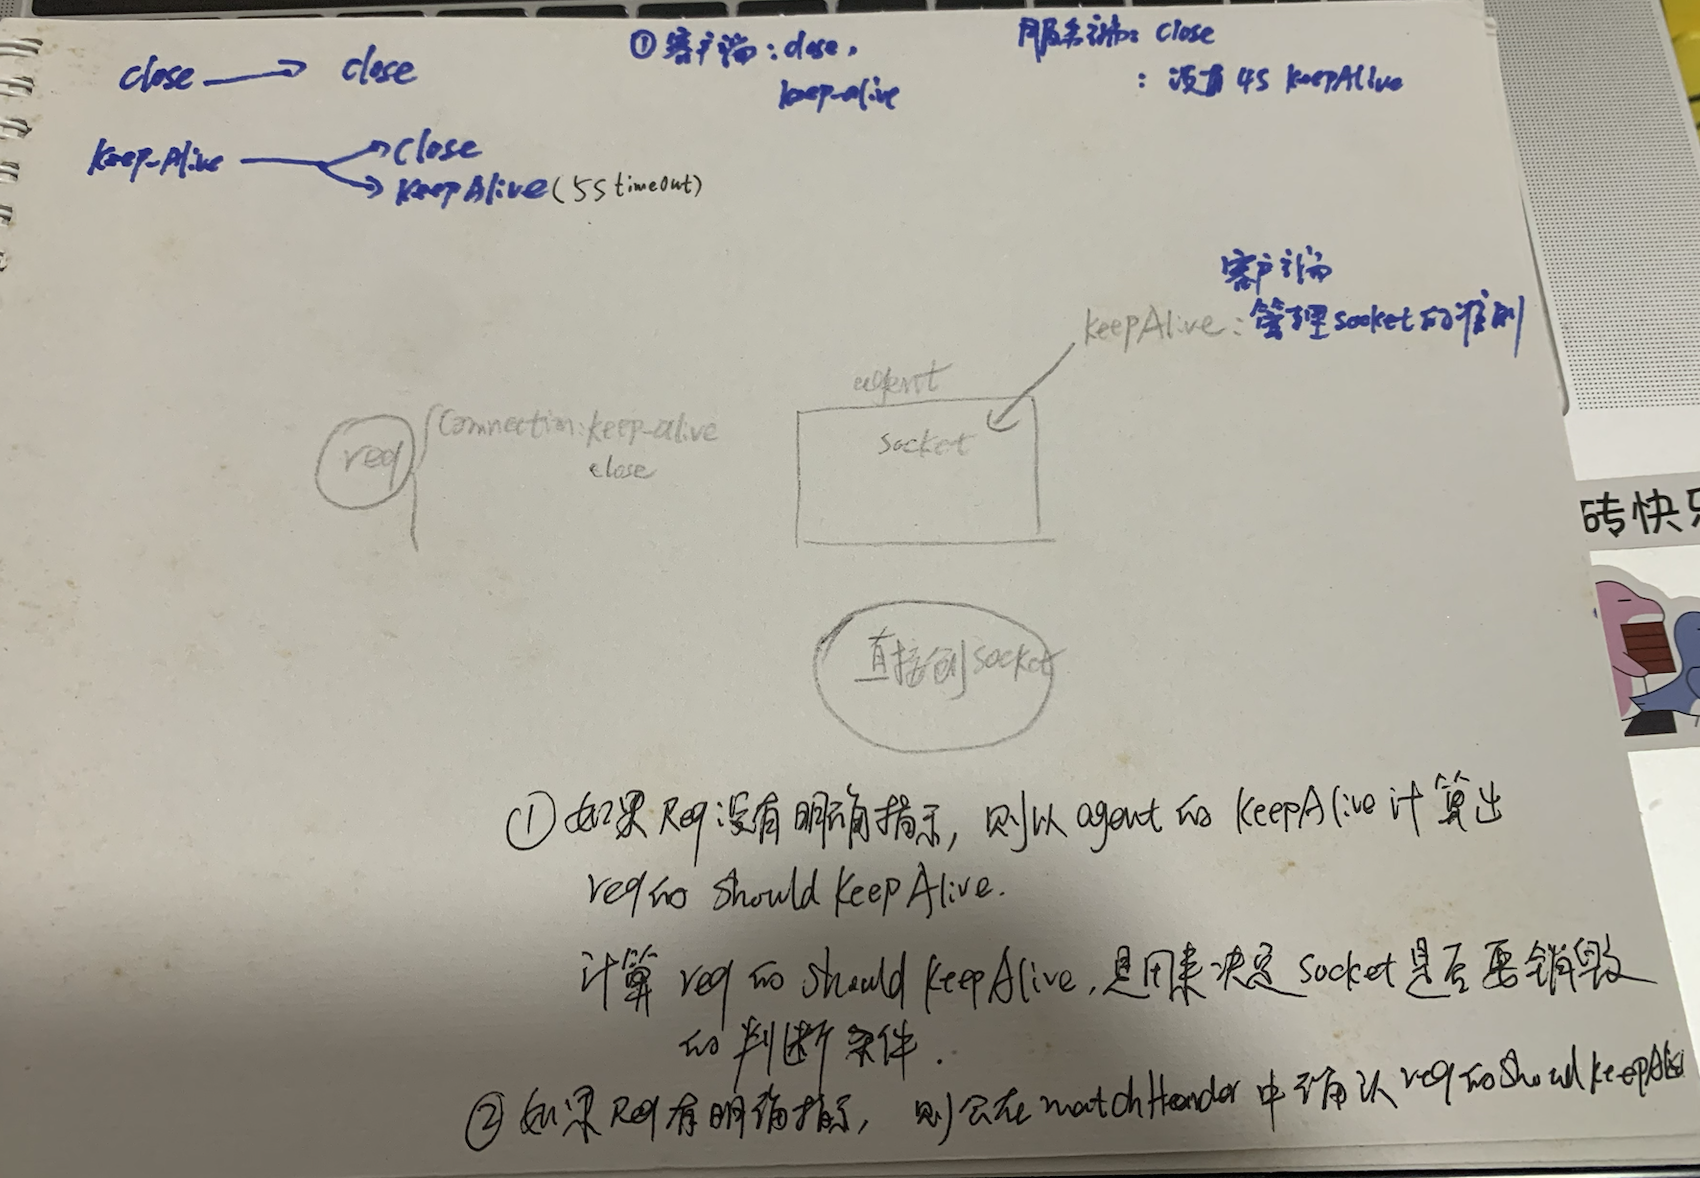 close → close
① 客户端：close，
keep-alive
服务端：close
：设置 4s keepAlive
keep-Alive → close
keepAlive（5s timeout）
客户端
keepAlive：管理socket的准则
agent
socket
req
Connection：keep-alive
close
直接创socket
① 如果Req没有明确指示，则以agent的keepAlive计算出
req的shouldkeepAlive．
计算req的shouldkeepAlive，是用来决定socket是否要销毁
的判断条件．
② 如果Req有明确指示，则会在matchHeader中确认req的shouldkeepAlive
砖快